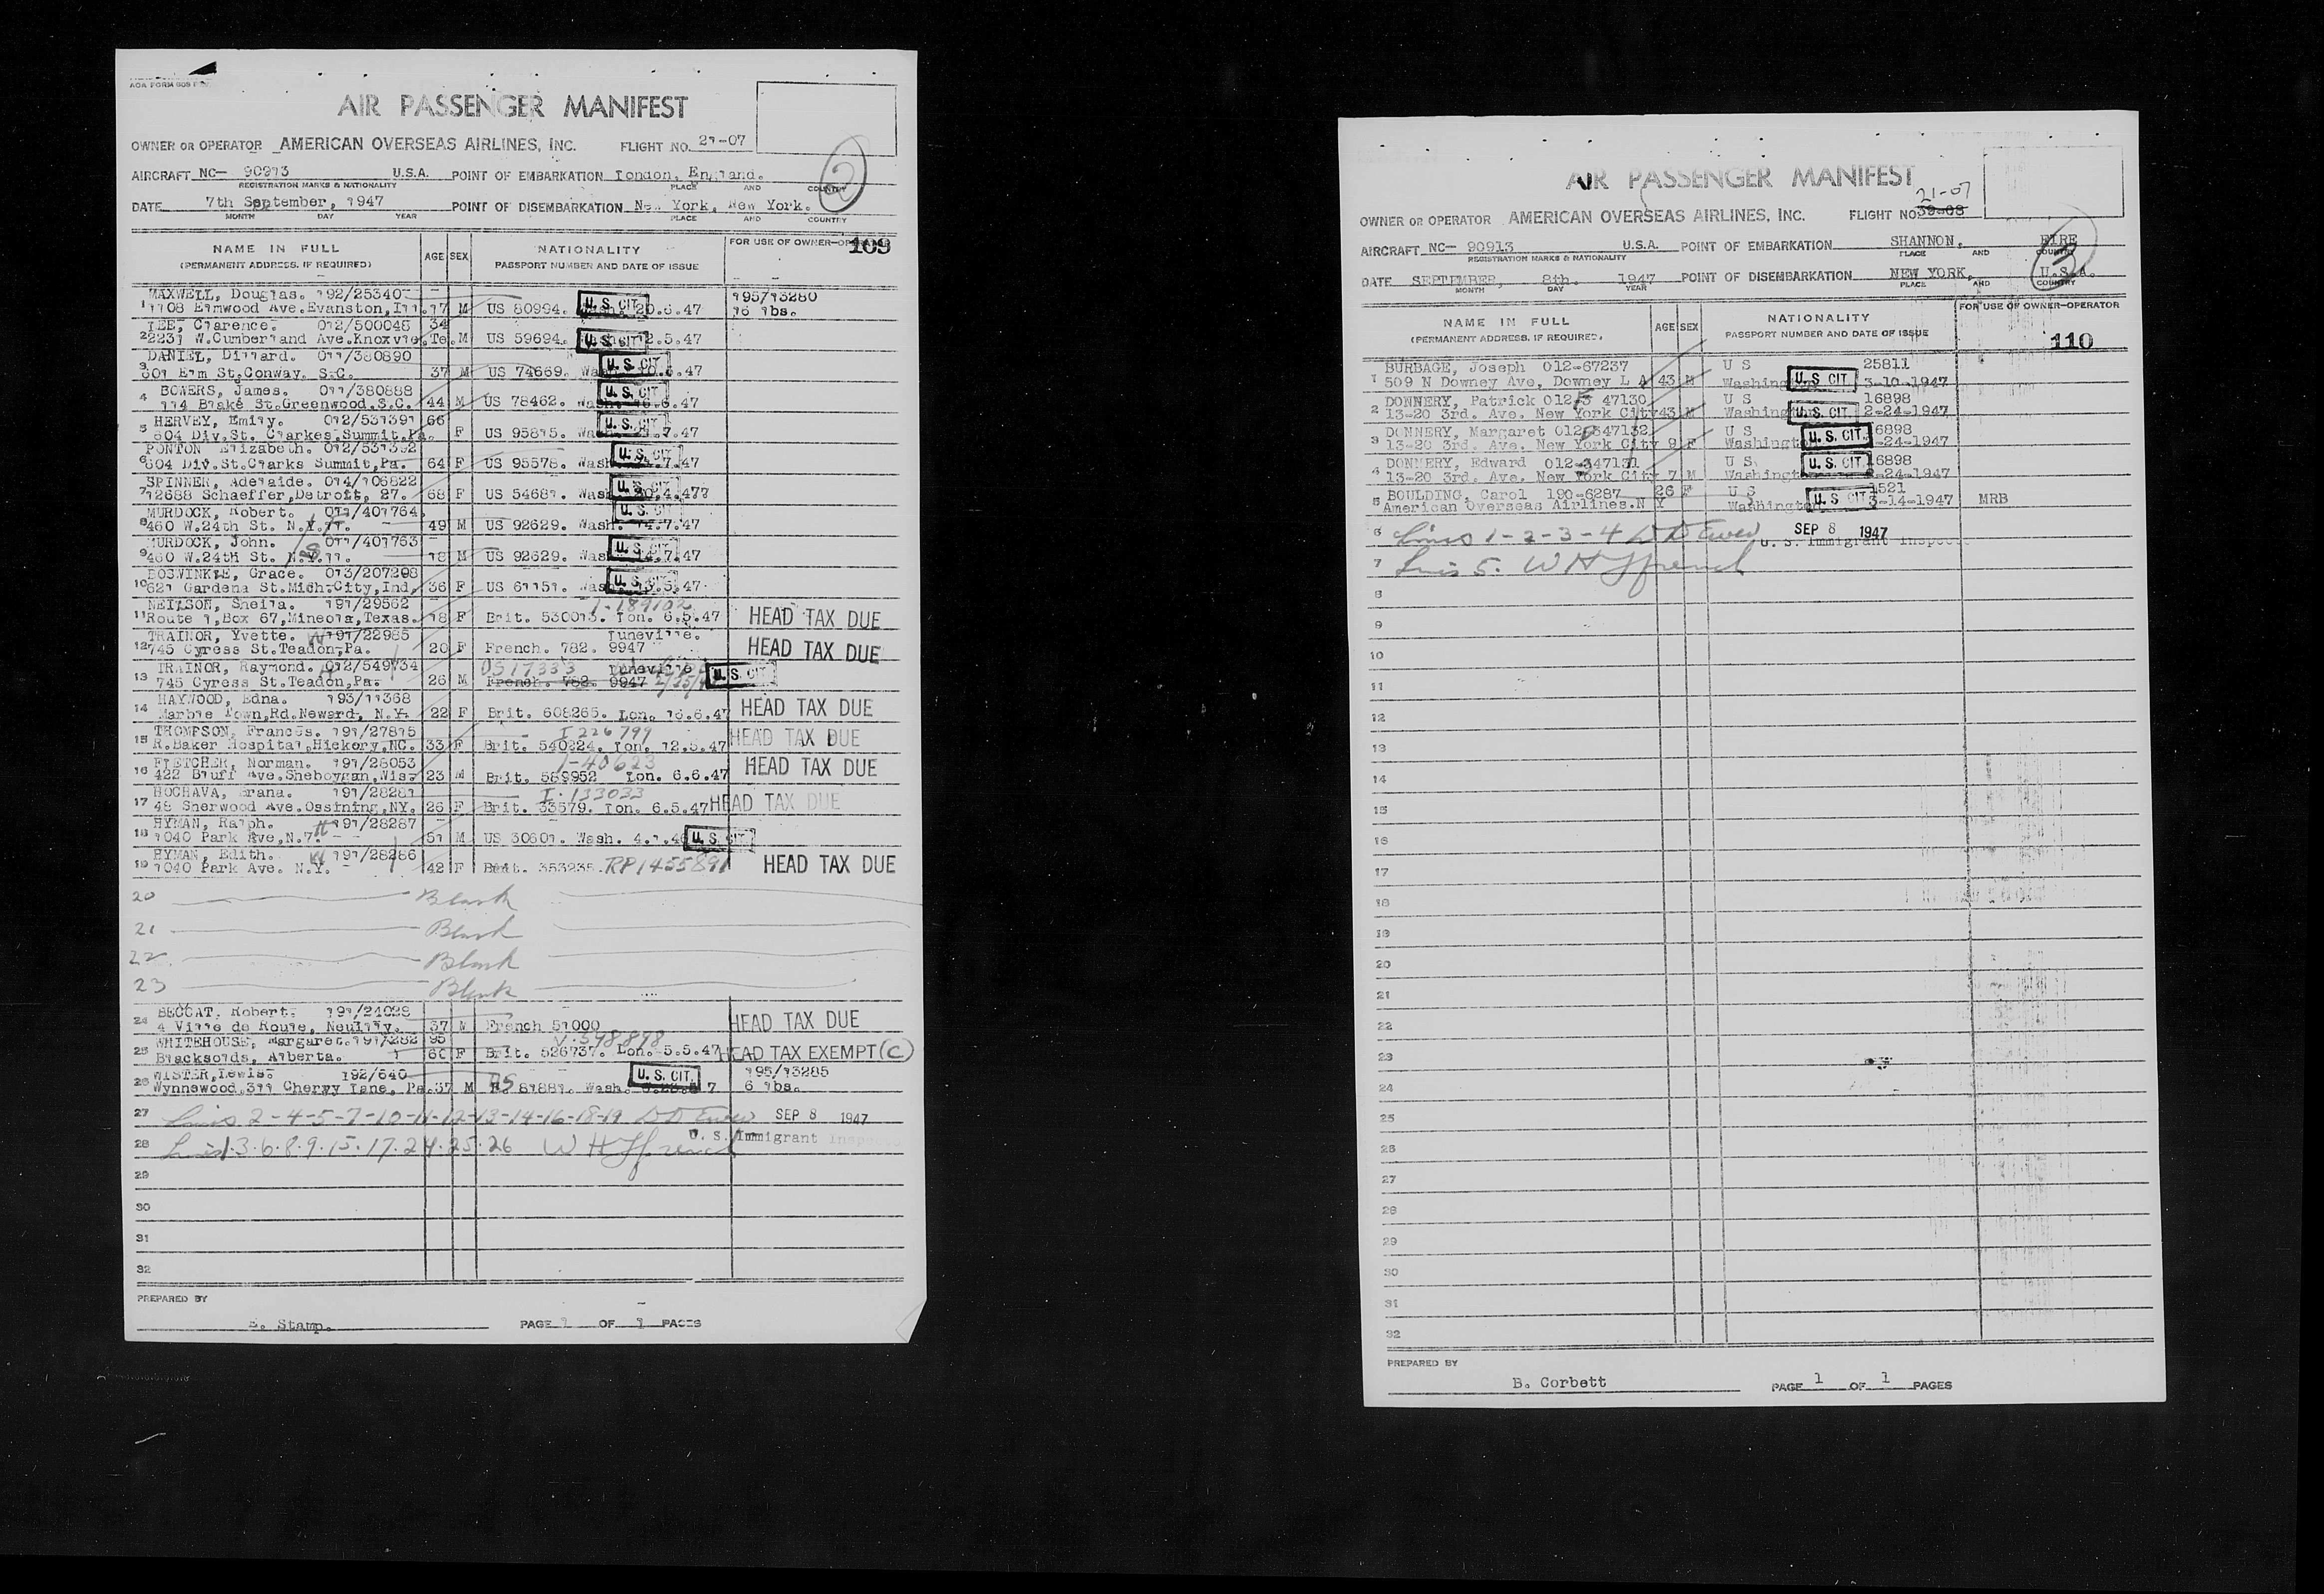 AIR PASSENGER MANIFEST
OWNER OR OPERATOR AMERICAN OVERSEAS AIRLINES, INC. FLIGHT NO. 21-07
AIRCRAFT NC- 90913 U.S.A. POINT OF EMBARKATION London, England.
REGISTRATION MARKS & NATIONALITY PLACE AND COUNTRY
2
DATE 7th September, 1947 POINT OF DISEMBARKATION New York, New York.
MONTH DAY YEAR PLACE AND COUNTRY
NAME IN FULL AGE SEX NATIONALITY FOR USE OF OWNER-OPERATOR 109
(PERMANENT ADDRESS, IF REQUIRED) PASSPORT NUMBER AND DATE OF ISSUE
MAXWELL, Douglas. 192/25340 195/13280
1 1108 Elmwood Ave.Evanston,Ill. 17 M US 80994. U.S. CIT. 20.6.47 16 lbs.
LEE, Clarence. 012/500048 34
2 2231 W.Cumberland Ave.Knoxvle.Te. M US 59694. U.S. CIT. 2.5.47
DANIEL, Dillard. 011/380890
3 601 Elm St.Conway. S.C. 37 M US 74669. Wash. U.S. CIT. .47
BOWERS, James. 011/380888
4 114 Blake St.Greenwood.S.C. 44 M US 78462. Wash. U.S. CIT. .6.47
HERVEY, Emily. 012/531391 66
5 604 Div.St. Clarkes.Summit.Pa. F US 95815. Wash. U.S. CIT. .7.47
PONTON Elizabeth. 012/531392
6 604 Div.St.Clarks Summit,Pa. 64 F US 95578. Wash. U.S. CIT. .7.47
SPINNER, Adelaide. 014/106822
7 12688 Schaeffer,Detroit, 27. 68 F US 54681. Wash. U.S. CIT. 4.47
MURDOCK, Robert. 011/401764.
8 460 W.24th St. N.Y.11. 49 M US 92629. Wash. U.S. CIT. 14.7.47
MURDOCK, John. 011/401763
9 460 W.24th St. N.Y.11. 18 M US 92629. Wash. U.S. CIT. .7.47
BOSWINKLE, Grace. 013/207298
10 621 Gardena St.Mich.City,Ind, 36 F US 61151. Wash. U.S. CIT. .5.47
NEILSON, Sheila. 191/29562 I-189102
11 Route 1,Box 67,Mineola,Texas. 18 F Brit. 530013. Lon. 6.5.47 HEAD TAX DUE
TRAINOR, Yvette. W 191/22985 Luneville.
12 745 Cyress St.Yeadon,Pa. 20 F French. 782. 9947 HEAD TAX DUE
TRAINOR, Raymond. H 012/549734 US 17333 Luneville
13 745 Cyress St.Yeadon,Pa. 26 M French. 782. 9947 U.S. CIT.
HAYWOOD, Edna. 193/11368
14 Marble Town,Rd.Neward, N.Y. 22 F Brit. 608265. Lon. 16.6.47 HEAD TAX DUE
THOMPSON, Frances. 191/27815 I 226799
15 R.Baker Hospital,Hickery,NC. 33 F Brit. 540224. Lon. 12.5.47 HEAD TAX DUE
FLETCHER, Norman. 191/28053 I-40623
16 422 Bluff Ave.Sheboygan,Wis. 23 M Brit. 589952 Lon. 6.6.47 HEAD TAX DUE
HOCHAVA, 191/28281 I-133033
17 48 Sherwood Ave.Ossining,NY. 26 F Brit. 33579. Lon. 6.5.47 HEAD TAX DUE
HYMAN, Ralph. H 191/28287
18 1040 Park Ave,N.Y. 51 M US 30601. Wash. 4.1.46 U.S. CIT.
HYMAN, Edith. W 191/28286
19 1040 Park Ave. N.Y. 42 F Brit. 353235. RP1455891 HEAD TAX DUE
20 Blank
21 Blank
22 Blank
23 Blank
BECCAT, Robert. 191/24028
24 4 Ville de Roule, Neuilly. 37 M French 51000 HEAD TAX DUE
WHITEHOUSE, Margaret. 191/282 95 V-598898
25 Blacksolds, Alberta. 60 F Brit. 526737. Lon. 5.5.47 HEAD TAX EXEMPT (C)
WISTER,Lewis. 192/640 195/13285
26 Wynnewood.311 Cherry Lane, Pa. 37 M US 81881. Wash. U.S. CIT. 7 6 lbs.
27 Lines 2-4-5-7-10-11-12-13-14-16-18-19 SEP 8 1947
U. S. Immigrant Inspector
28 Lines 1.3.6.8.9.15.17.24.25.26 W H Ffrench
29
30
31
32
PREPARED BY
E. Stamp. PAGE 1 OF 1 PAGES
AIR PASSENGER MANIFEST
21-07
OWNER OR OPERATOR AMERICAN OVERSEAS AIRLINES, INC. FLIGHT NO. 39-08
AIRCRAFT NC- 90913 U.S.A. POINT OF EMBARKATION SHANNON, EIRE
REGISTRATION MARKS & NATIONALITY PLACE AND COUNTRY
3
DATE SEPTEMBER, 8th. 1947 POINT OF DISEMBARKATION NEW YORK, U.S.A.
MONTH DAY YEAR PLACE AND COUNTRY
FOR USE OF OWNER-OPERATOR
NAME IN FULL AGE SEX NATIONALITY
(PERMANENT ADDRESS, IF REQUIRED) PASSPORT NUMBER AND DATE OF ISSUE 110
BURBAGE, Joseph 012-67237 U S 25811
1 509 N Downey Ave, Downey L A 43 M Washington U.S. CIT. 3-10-1947
DONNERY, Patrick 012 47130 U S 16898
2 13-20 3rd. Ave. New York City 43 M Washington U.S. CIT. 2-24-1947
DONNERY, Margaret 012-347132 U S 6898
3 13-20 3rd. Ave. New York City 9 F Washington U.S. CIT. -24-1947
DONNERY, Edward 012-347131 U S. 6898
4 13-20 3rd. Ave. New York City 7 M Washington U.S. CIT. 2-24-1947
BOULDING, Carol 190-6287 26 F U S 1521
5 American Overseas Airlines.N Y Washington U.S. CIT. 3-14-1947 MRB
6 Lines 1-2-3-4 SEP 8 1947
U. S. Immigrant Inspector
7 Lines 5. W H Ffrench
8
9
10
11
12
13
14
15
16
17
18
19
20
21
22
23
24
25
26
27
28
29
30
31
32
PREPARED BY
B. Corbett PAGE 1 OF 1 PAGES